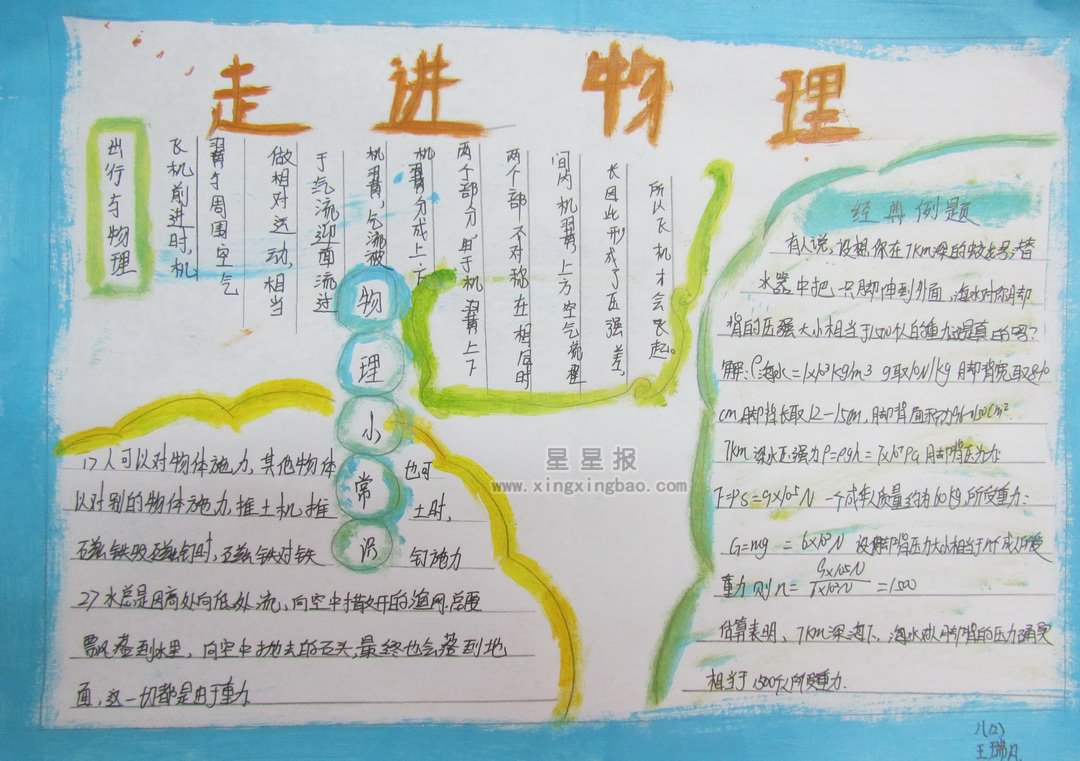 走进物理
出行与物理
飞机前进时,机
翼与周围空气
做相对运动,相当
于气流迎面流过
机翼,气流被
机翼分成上.下
两个部分,由于机翼上下
两个部不对称在相同时
间内机翼上方空气流程
长因此形成了压强差,
所以飞机才会飞起。
物理小常识
1)人可以对物体施力,其他物体也可
以对别的物体施力,推土机推土时,
磁铁吸磁钉时,磁铁对铁钉施力
2)水总是因高处向低处流,向空中撒开的渔网总要
飘落到水里,向空中抛去的石头,最终也会落到地
面,这一切都是由于重力
经典例题
有人说,设想你在7km深的蛟龙号潜
水器中把一只脚伸到外面,海水对你脚
背的压强大小相当于1500个人的重力这是真的吗?
解:ρ海水=1x10³kg/m³ g取10N/kg 脚背宽取8~10
cm,脚背长取12-15cm,脚背面积为96~150cm²
7km深水压强为P=ρgh=7x10⁷Pa 脚背压力为
F=PS=9x10⁵N 一个成年人质量约为60kg,所受重力:
G=mg=6x10²N 设脚背压力大小相当于n个成人的受
重力则n=9x10⁵N/6x10²N=1500
估算表明,7km深海下,海水对人脚背的压力确实
相当于1500个人所受重力.
星星报
www.xingxingbao.com
八(2)
王瑞凡